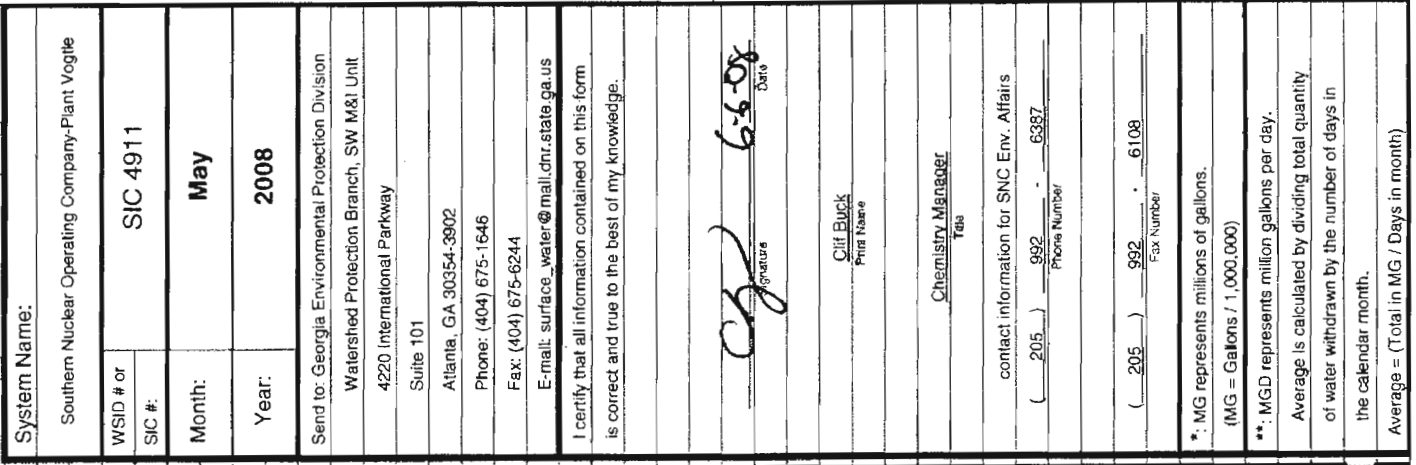 System Name:
Southern Nuclear Operating Company-Plant Vogtle
WSID # or
SIC #:
SIC 4911
Month:
May
Year:
2008
Send to: Georgia Environmental Protection Division
Watershed Protection Branch, SW M&I Unit
4220 International Parkway
Suite 101
Atlanta, GA 30354-3902
Phone: (404) 675-1646
Fax: (404) 675-6244
E-mail: surface_water@mail.dnr.state.ga.us
I certify that all information contained on this form
is correct and true to the best of my knowledge.
6-6-08
Signature Date
Clif Buck
Print Name
Chemistry Manager
Title
contact information for SNC Env. Affairs
( 205 ) 992 - 6387
Phone Number
( 205 ) 992 - 6108
Fax Number
*: MG represents millions of gallons.
(MG = Gallons / 1,000,000)
**: MGD represents million gallons per day.
Average is calculated by dividing total quantity
of water withdrawn by the number of days in
the calendar month.
Average = (Total in MG / Days in month)